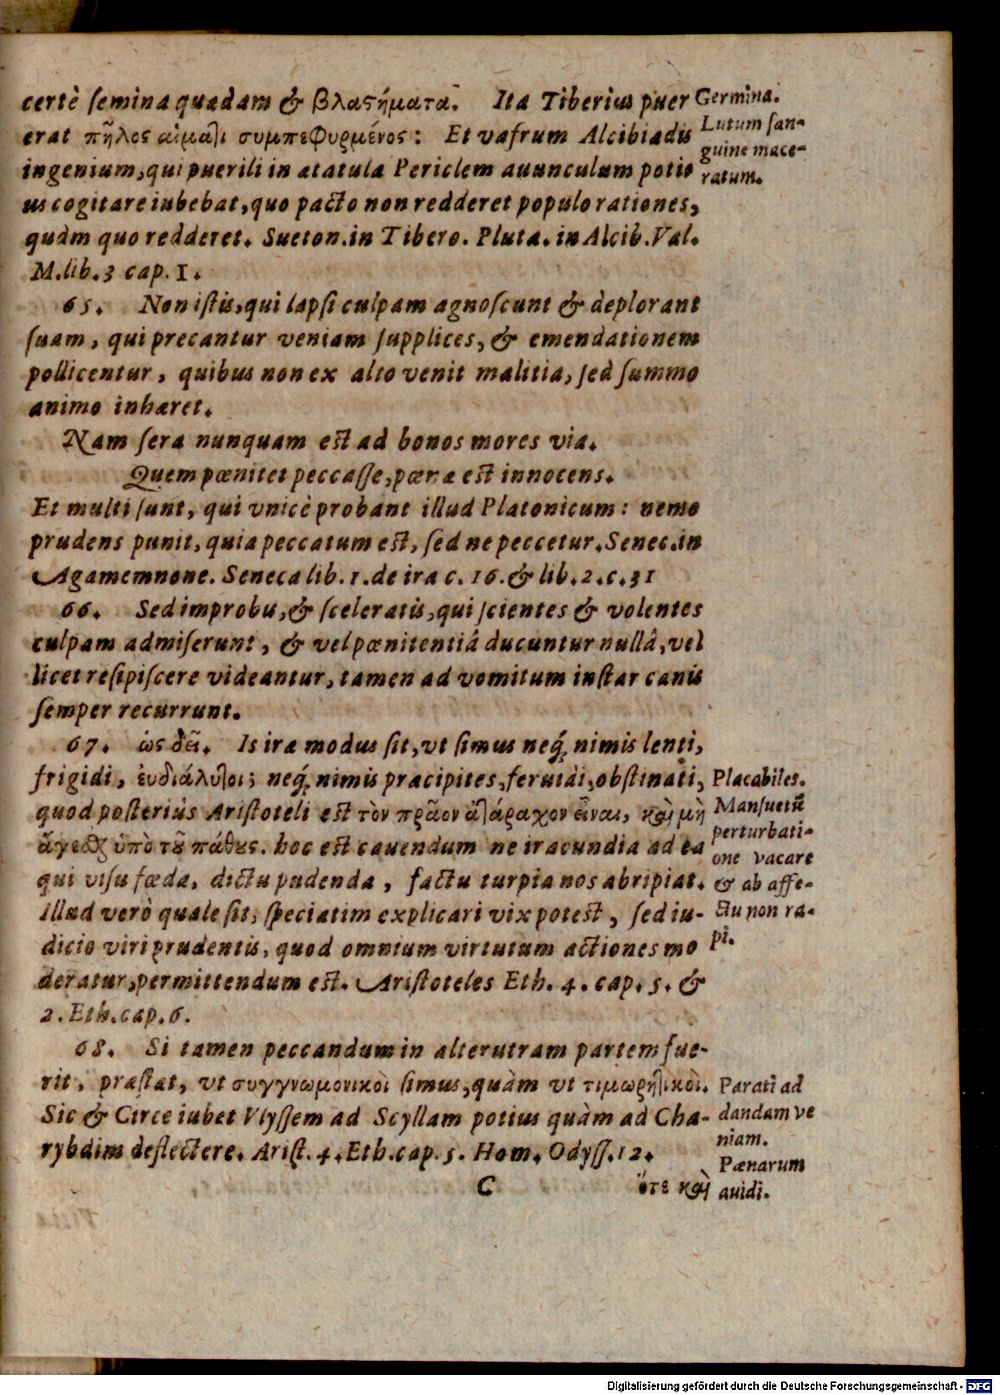 certè ſemina quædam & βλαστήματα. Ita Tiberius puer
erat πῆλος αἵματι συμπεφυρμένος: Et vafrum Alcibiadis
ingenium, qui puerili in ætatula Periclem auunculum potio
us cogitare iubebat, quo pacto non redderet populo rationes,
quàm quo redderet. Sueton. in Tibero. Pluta. in Alcib. Val.
M. lib. 3 cap. 1.
65. Non iſtis, qui lapſi culpam agnoſcunt & deplorant
ſuam, qui precantur veniam ſupplices, & emendationem
pollicentur, quibus non ex alto venit malitia, ſed ſummo
animo inhæret.
Nam ſera nunquam eſt ad bonos mores via.
Quem pœnitet peccaſſe, pœnæ eſt innocens.
Et multi ſunt, qui vnicè probant illud Platonicum: nemo
prudens punit, quia peccatum eſt, ſed ne peccetur. Senec. in
Agamemnone. Seneca lib. 1. de ira c. 16. & lib. 2. c. 31
66. Sed improbis, & ſceleratis, qui ſcientes & volentes
culpam admiſerunt, & vel pœnitentiâ ducuntur nullâ, vel
licet reſipiſcere videantur, tamen ad vomitum inſtar canis
ſemper recurrunt.
67. ὡς δεῖ. Is iræ modus ſit, vt ſimus neq́ nimis lenti,
frigidi, ἐυδιάλυτοι; neq́ nimis præcipites, feruidi, obſtinati,
quod poſterius Ariſtoteli eſt τὸν πρᾶον ἀτάραχον εἶναι, καὶ μὴ
ἄγεσθαι ὑπὸ τοῦ πάθους. hoc eſt cauendum ne iracundia ad ea
qui viſu fœda, dictu pudenda, factu turpia nos abripiat.
Illud verò quale ſit, ſpeciatim explicari vix poteſt, ſed iu-
dicio viri prudentis, quod omnium virtutum actiones mo
deratur, permittendum eſt. Ariſtoteles Eth. 4. cap. 5. &
2. Eth. cap. 6.
68. Si tamen peccandum in alterutram partem fue-
rit, præſtat, vt συγγνωμονικοὶ ſimus, quàm vt τιμωρητικοὶ.
Sic & Circe iubet Vlyſſem ad Scyllam potius quàm ad Cha-
rybdim deflectere. Ariſt. 4. Eth. cap. 5. Hom. Odyſſ. 12.
C ὅτε καὶ
Germina.
Lutum ſan-
guine mace-
ratum.
Placabiles.
Manſuetũ
perturbati-
one vacare
& ab affe-
ctu non ra-
pi.
Parati ad
dandam ve
niam.
Pœnarum
auidi.
Digitalisierung gefördert durch die Deutsche Forschungsgemeinschaft - DFG